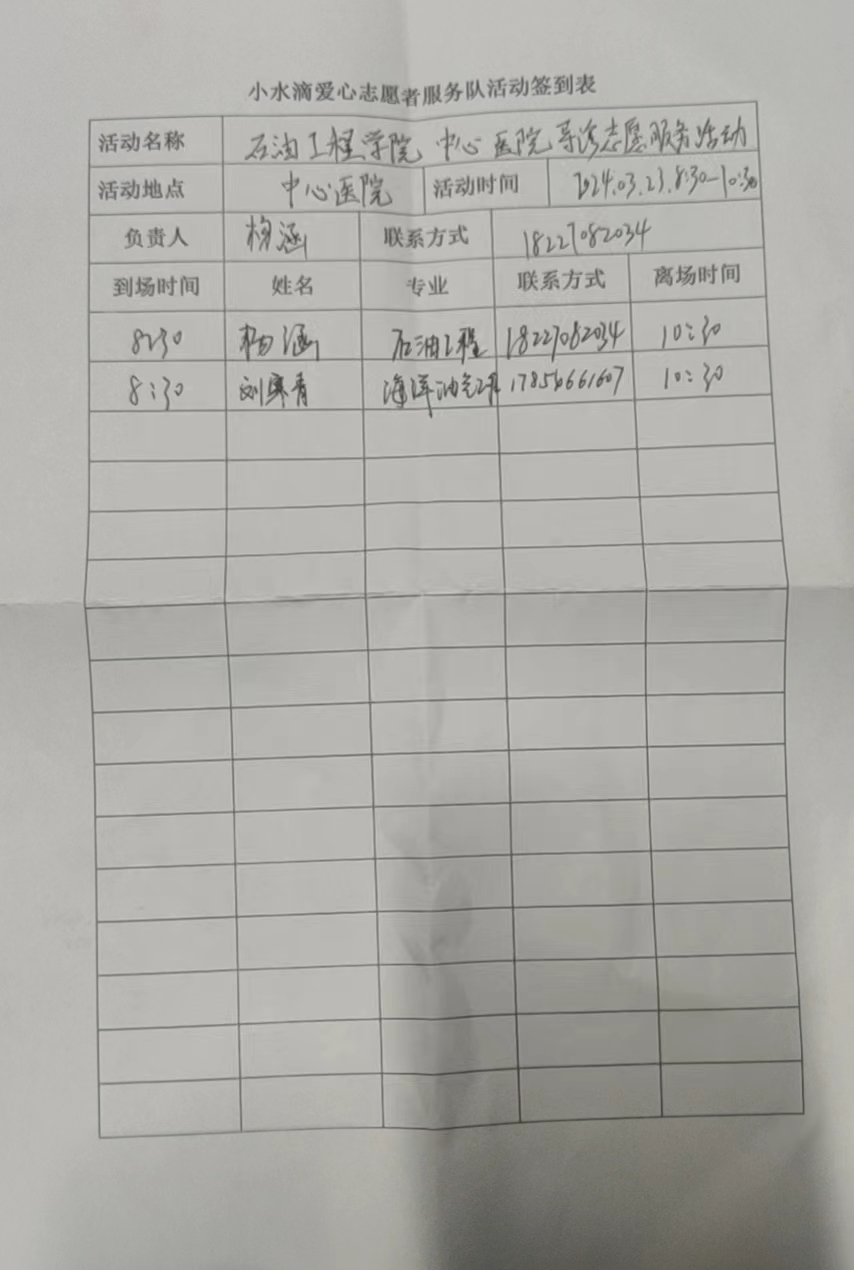 小水滴爱心志愿者服务队活动签到表
活动名称 石油工程学院 中心医院导诊志愿服务活动
活动地点 中心医院 活动时间 2024.03.23.8:30-10:30
负责人 杨涵 联系方式 18227082034
到场时间 姓名 专业 联系方式 离场时间
8:30 杨涵 石油工程 18227082034 10:30
8:30 刘寒青 海洋油气工程 17856661607 10:30